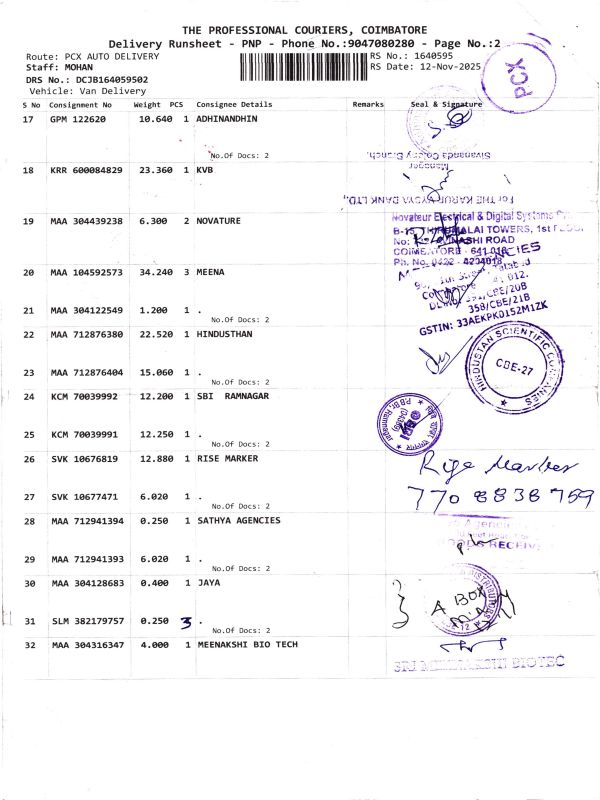 THE PROFESSIONAL COURIERS, COIMBATORE
Delivery Runsheet - PNP - Phone No.:9047080280 - Page No.:2
Route: PCX AUTO DELIVERY
RS No.: 1640595
Staff: MOHAN
RS Date: 12-Nov-2025
DRS No.: DCJB164059502
Vehicle: Van Delivery
PCX
S No Consignment No Weight PCS Consignee Details Remarks Seal & Signature
17 GPM 122620 10.640 1 ADHINANDHIN
No.Of Docs: 2
Sivananda Colony Branch.
18 KRR 600084829 23.360 1 KVB
Manager
For THE KARUR VYSYA BANK LTD.,
19 MAA 304439238 6.300 2 NOVATURE
Novateur Electrical & Digital Systems
B-15, THIRUMALAI TOWERS, 1st FLOOR
AVINASHI ROAD
COIMBATORE - 641 018
Ph. No. 0422 - 4204018
20 MAA 104592573 34.240 3 MEENA
012.
/CBE/20B
35B/CBE/21B
GSTIN: 33AEKPK0152M1ZK
21 MAA 304122549 1.200 1 .
No.Of Docs: 2
22 MAA 712876380 22.520 1 HINDUSTHAN
HINDUSTAN SCIENTIFIC COMPANIES
CBE-27
23 MAA 712876404 15.060 1 .
No.Of Docs: 2
24 KCM 70039992 12.200 1 SBI RAMNAGAR
SBI
25 KCM 70039991 12.250 1 .
No.Of Docs: 2
26 SVK 10676819 12.880 1 RISE MARKER
Rise Marker
770 8838 759
27 SVK 10677471 6.020 1 .
No.Of Docs: 2
28 MAA 712941394 0.250 1 SATHYA AGENCIES
GOODS RECEIVED
29 MAA 712941393 6.020 1 .
No.Of Docs: 2
30 MAA 304128683 0.400 1 JAYA
DISTRIBUTORS
A BOX
31 SLM 382179757 0.250 3 .
No.Of Docs: 2
32 MAA 304316347 4.000 1 MEENAKSHI BIO TECH
SRI MEENAKSHI BIOTEC